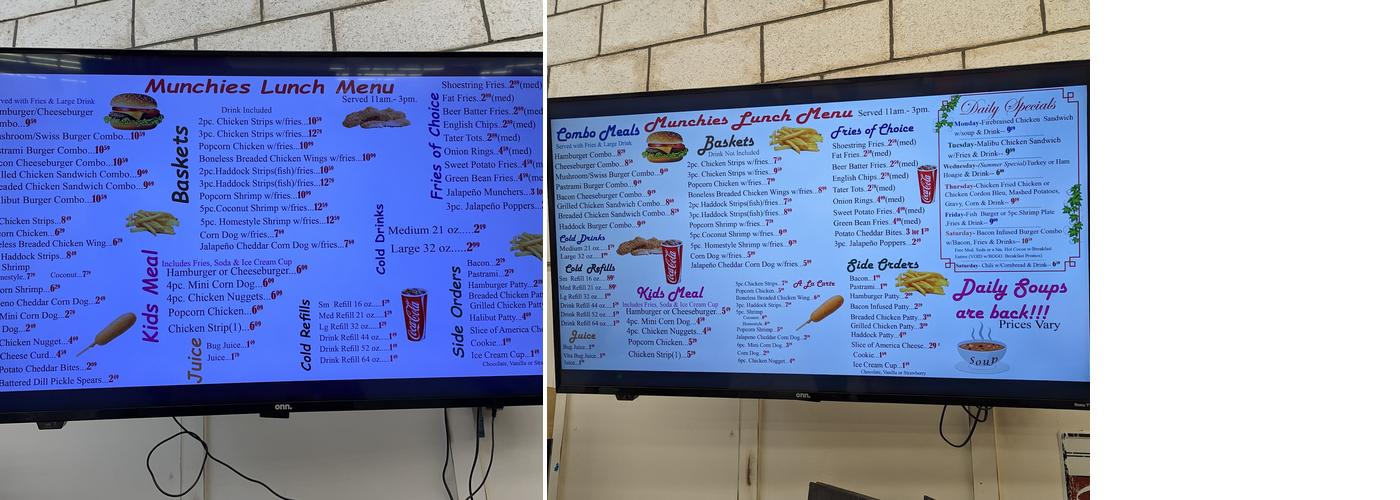 Munchies Lunch Menu
Served 11am.- 3pm.
rved with Fries & Large Drink
mburger/Cheeseburger
Combo...10
shroom/Swiss Burger Combo...10
strami Burger Combo...10
con Cheeseburger Combo...10
lled Chicken Sandwich Combo...9
eaded Chicken Sandwich Combo...9
libut Burger Combo...10
Chicken Strips...8
corn Chicken...6
eless Breaded Chicken Wing...6
Haddock Strips...8
Shrimp
mestyle..7 Coconut...7
orn Shrimp...6
peno Cheddar Corn Dog...2
Mini Corn Dog...2
Dog...2
Chicken Nugget...4
Cheese Curd...4
Potato Cheddar Bites...2
Battered Dill Pickle Spears...2
Baskets
Drink Included
2pc. Chicken Strips w/fries...10
3pc. Chicken Strips w/fries...12
Popcorn Chicken w/fries...10
Boneless Breaded Chicken Wings w/fries...10
2pc.Haddock Strips(fish)/fries...10
3pc.Haddock Strips(fish)/fries...12
Popcorn Shrimp w/fries...10
5pc.Coconut Shrimp w/fries...12
5pc. Homestyle Shrimp w/fries...12
Corn Dog w/fries...7
Jalapeño Cheddar Corn Dog w/fries...7
Kids Meal
Includes Fries, Soda & Ice Cream Cup
Hamburger or Cheeseburger...6
4pc. Mini Corn Dog...6
4pc. Chicken Nuggets...6
Popcorn Chicken...6
Chicken Strip(1)...6
Juice
Bug Juice...1
Juice...1
Cold Drinks
Medium 21 oz.....2
Large 32 oz.....2
Cold Refills
Sm Refill 16 oz....1
Med Refill 21 oz....1
Lg Refill 32 oz....1
Drink Refill 44 oz....1
Drink Refill 52 oz....1
Drink Refill 64 oz....1
Fries of Choice
Shoestring Fries..2(med)
Fat Fries..2(med)
Beer Batter Fries..2(med)
English Chips..2(med)
Tater Tots..2(med)
Onion Rings..4(med)
Sweet Potato Fries..4(m
Green Bean Fries..4(m
Jalapeño Munchers...3
3pc. Jalapeño Poppers..
Side Orders
Bacon...2
Pastrami...2
Hamburger Patty...2
Breaded Chicken Pa
Grilled Chicken Patt
Halibut Patty...4
Slice of America Che
Cookie...1
Ice Cream Cup...1
Chocolate, Vanilla or Stra
onn.
Munchies Lunch Menu
Served 11am.- 3pm.
Combo Meals
Served with Fries & Large Drink
Hamburger Combo...8
Cheeseburger Combo...8
Mushroom/Swiss Burger Combo...9
Pastrami Burger Combo...9
Bacon Cheeseburger Combo...9
Grilled Chicken Sandwich Combo...8
Breaded Chicken Sandwich Combo...8
Haddock Burger Combo...9
Cold Drinks
Medium 21 oz....1
Large 32 oz....1
Cold Refills
Sm Refill 16 oz....
Med Refill 21 oz....
Lg Refill 32 oz....1
Drink Refill 44 oz....1
Drink Refill 52 oz....1
Drink Refill 64 oz....1
Juice
Bug Juice...1
Vita Bug Juice...1
Juice...1
Baskets
Drink Not Included
2pc. Chicken Strips w/fries...7
3pc. Chicken Strips w/fries...9
Popcorn Chicken w/fries...7
Boneless Breaded Chicken Wings w/fries...8
2pc Haddock Strips(fish)/fries...7
3pc Haddock Strips(fish)/fries...8
Popcorn Shrimp w/fries...7
5pc.Coconut Shrimp w/fries...9
5pc. Homestyle Shrimp w/fries...9
Corn Dog w/fries...5
Jalapeño Cheddar Corn Dog w/fries...5
Kids Meal
Includes Fries, Soda & Ice Cream Cup
Hamburger or Cheeseburger...5
4pc. Mini Corn Dog...4
4pc. Chicken Nuggets...4
Popcorn Chicken...5
Chicken Strip(1)...5
A La Carte
5pc.Chicken Strips...7
Popcorn Chicken...5
Boneless Breaded Chicken Wing...6
3pc. Haddock Strips...7
5pc. Shrimp
Coconut...
Homestyle...
Popcorn Shrimp...5
Jalapeno Cheddar Corn Dog...2
6pc. Mini Corn Dog...3
Corn Dog...2
6pc. Chicken Nugget...4
Fries of Choice
Shoestring Fries..2(med)
Fat Fries..2(med)
Beer Batter Fries..2(med)
English Chips..2(med)
Tater Tots..2(med)
Onion Rings..4(med)
Sweet Potato Fries..4(med)
Green Bean Fries..4(med)
Potato Cheddar Bites..3 for 1
3pc. Jalapeño Poppers...2
Side Orders
Bacon...1
Pastrami...1
Hamburger Patty...2
Bacon Infused Patty...2
Breaded Chicken Patty...3
Grilled Chicken Patty...3
Haddock Patty...4
Slice of America Cheese..29
Cookie...1
Ice Cream Cup...1
Chocolate, Vanilla or Strawberry
Daily Specials
Monday-Firebraised Chicken Sandwich
w/soup & Drink-- 9
Tuesday-Malibu Chicken Sandwich
w/Fries & Drink-- 9
Wednesday-(Summer Special)Turkey or Ham
Hoagie & Drink-- 6
Thursday-Chicken Fried Chicken or
Chicken Cordon Bleu, Mashed Potatoes,
Gravy, Corn & Drink-- 9
Friday-Fish Burger or 5pc.Shrimp Plate
,Fries & Drink-- 9
Saturday- Bacon Infused Burger Combo
w/Bacon, Fries & Drinks-- 10
Free Med. Soda or a Sm. Hot Cocoa w/Breakfast
Entree (VOID w/BOGO Breakfast Promos)
Saturday- Chili w/Cornbread & Drink-- 6
Daily Soups
are back!!!
Prices Vary
Coca-Cola
soup
onn.